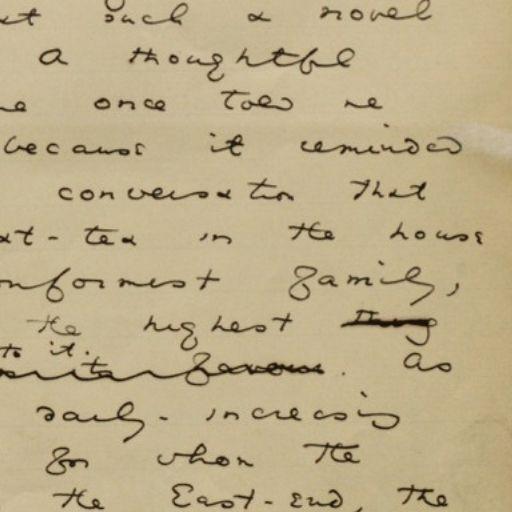 such a novel
A thoughtful
once told me
because it reminded
conversation that
at-tea in the house
nonformist family,
the highest thing
to it.
favour. As
daily-increasing
for whom the
the East-End, the